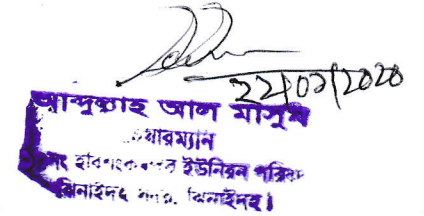 22/07/2020
আব্দুল্লাহ আল মাসুম
চেয়ারম্যান
নং ইউনিয়ন পরিষদ
ঝিনাইদহ সদর, ঝিনাইদহ।